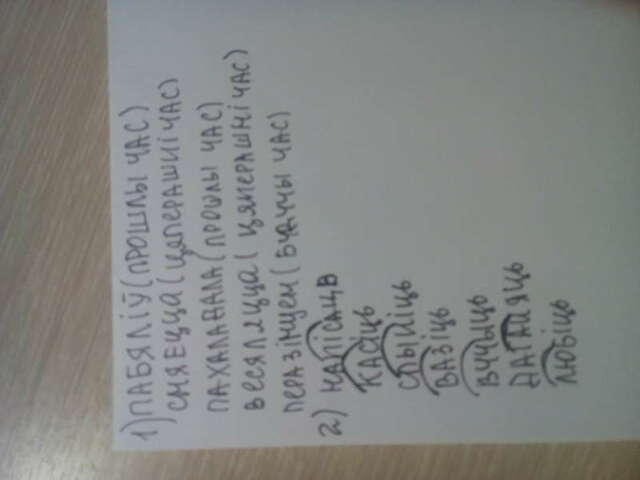 1) ПАБЯЛІЎ (ПРОШЛЫ ЧАС)
СМЯЕЦЦА (ЦЯПЕРАШНІ ЧАС)
ПАХАЛАДАЛА (ПРОШЛЫ ЧАС)
ВЕСЯЛІЦЦА (ЦЯПЕРАШНІ ЧАС)
ПЕРАЗІМУЕМ (БУДУЧЫ ЧАС)
2) НАПІСАЦЬ
КАСІЦЬ
СПЫНІЦЬ
ВАЗІЦЬ
ВУЧЫЦЬ
ДАГАНЯЦЬ
ЛЮБІЦЬ